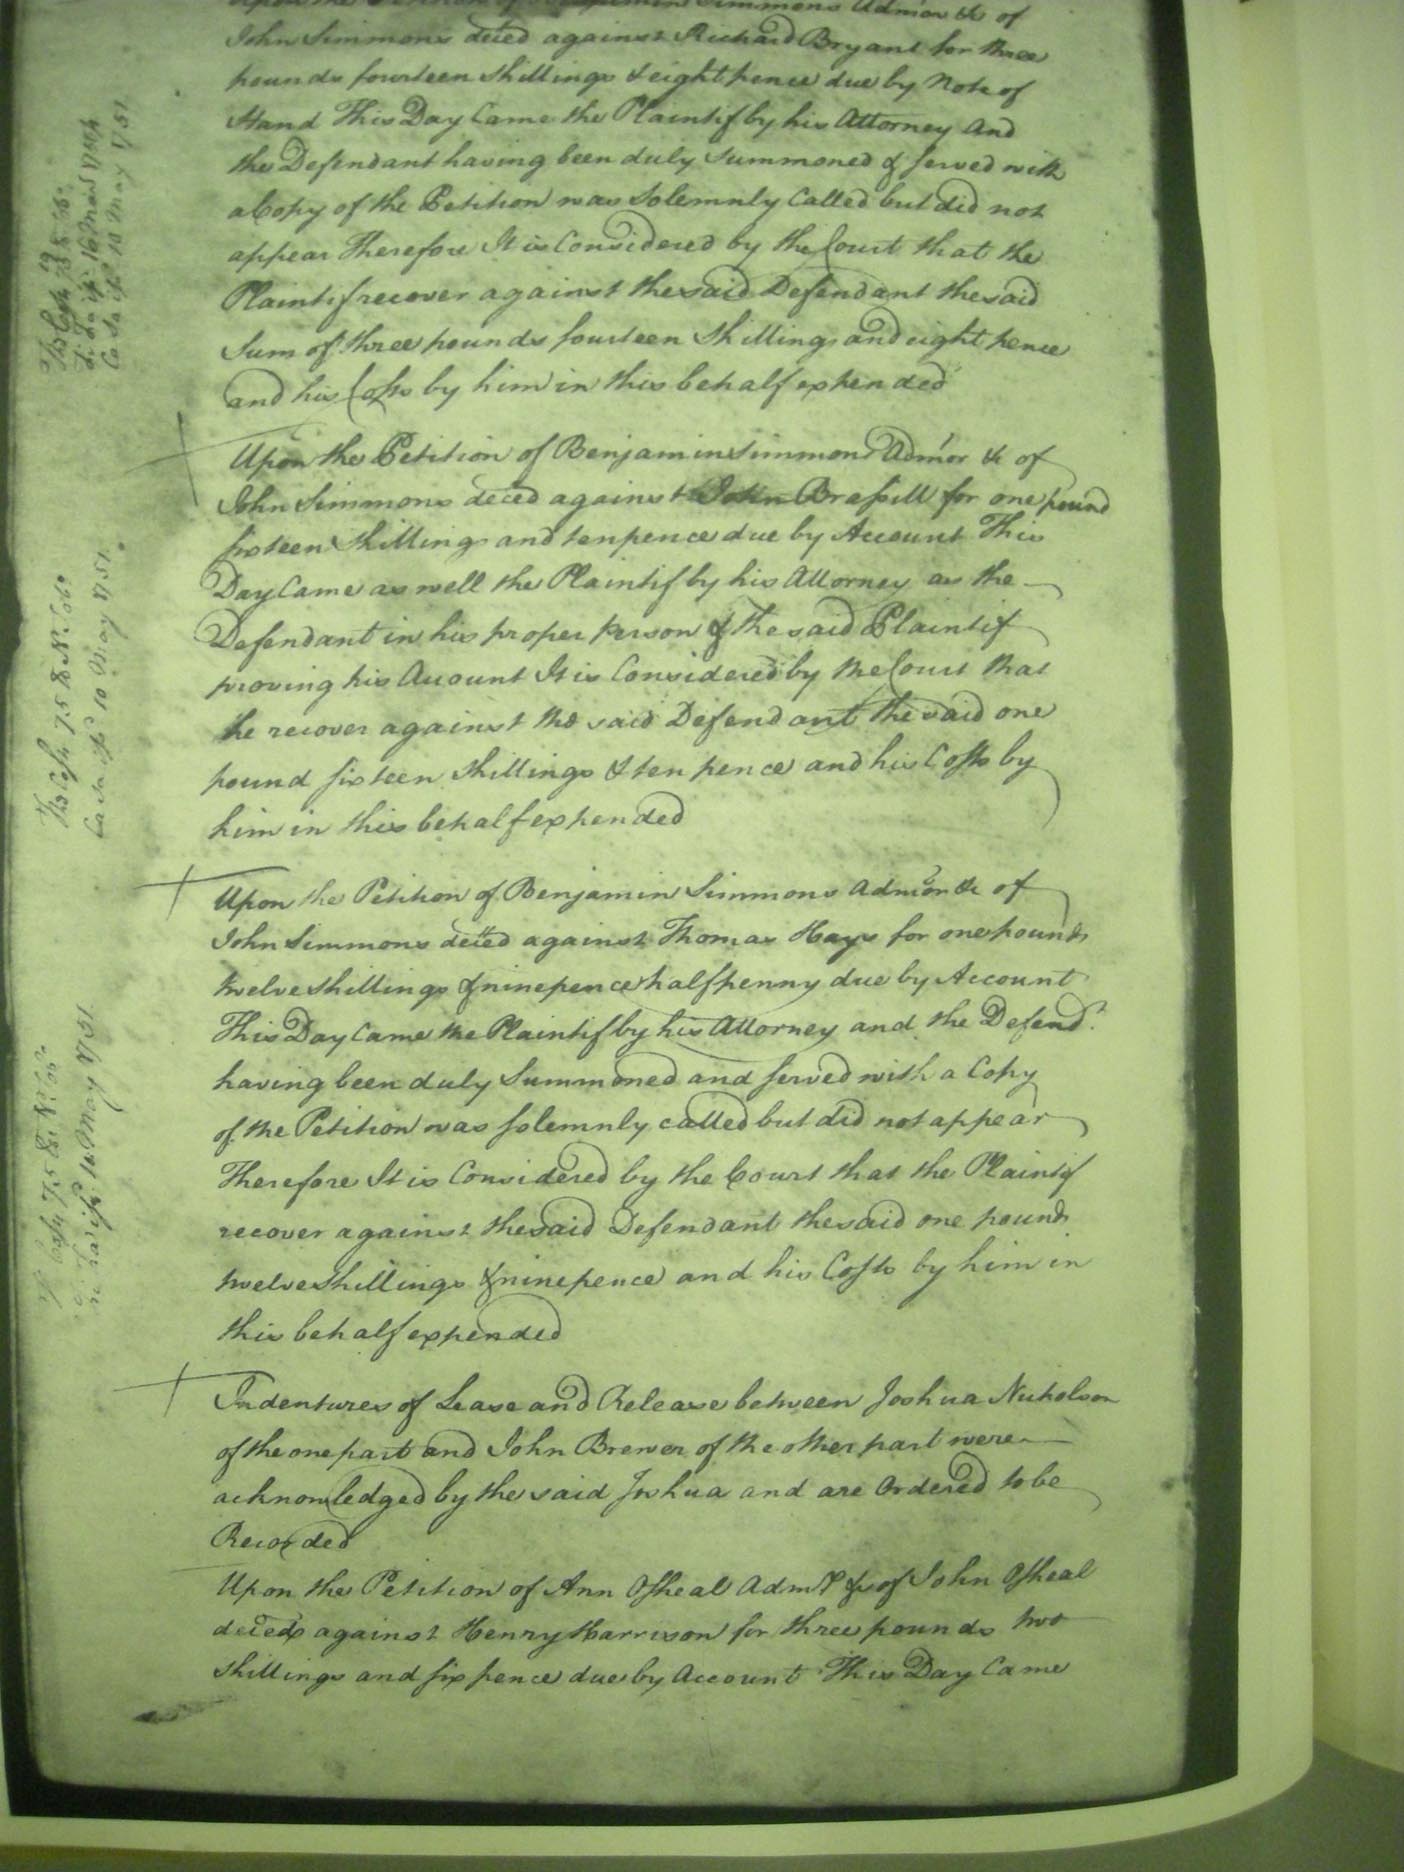 Upon the Petition of Benjamin Simmons Admor &c of
John Simmons deced against Richard Bryant for three
pounds fourteen shillings & eight pence due by Note of
Hand This Day Came the Plaintif by his Attorney And
the Defendant having been duly Summoned & served with
a Copy of the Petition was Solemnly Called but did not
appear Therefore It is Considered by the Court that the
Plaintif recover against the said Defendant the said
Sum of three pounds fourteen Shillings and eight pence
and his Costs by him in this behalf expended
Upon the Petition of Benjamin Simmons Admor &c of
John Simmons deced against John Brassill for one pound
sixteen Shillings and ten pence due by Account This
Day Came as well the Plaintif by his Attorney as the
Defendant in his proper person & the said Plaintif
proving his Account It is Considered by the Court that
he recover against the said Defendant the said one
pound sixteen shillings & ten pence and his Costs by
him in this behalf expended
Upon the Petition of Benjamin Simmons Admor &c of
John Simmons deced against Thomas Hays for one pound
twelve shillings & ninepence halfpenny due by Account
This Day Came the Plaintif by his Attorney and the Defend.t
having been duly Summoned and served with a Copy
of the Petition was solemnly called but did not appear
Therefore It is Considered by the Court that the Plaintif
recover against the said Defendant the said one pound
twelve shillings & ninepence and his Costs by him in
this behalf expended
Indentures of Lease and Release between Joshua Nicholson
of the one part and John Brewer of the other part were
acknowledged by the said Joshua and are Ordered to be
Recorded
Upon the Petition of Ann Osheal Adm.x &c of John Osheal
deced against Henry Harrison for three pounds two
shillings and six pence due by Account This Day Came
10 May 1751
10 May 1751
May 1751